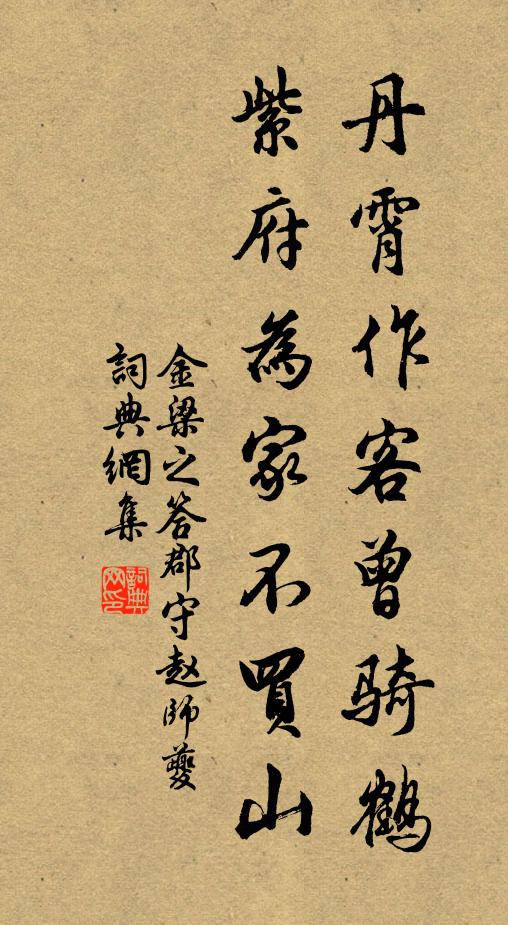 丹霄作客曾騎鶴
紫府為家不買山
金梁之答郡守趙師夔
詞典網集
詞典網印